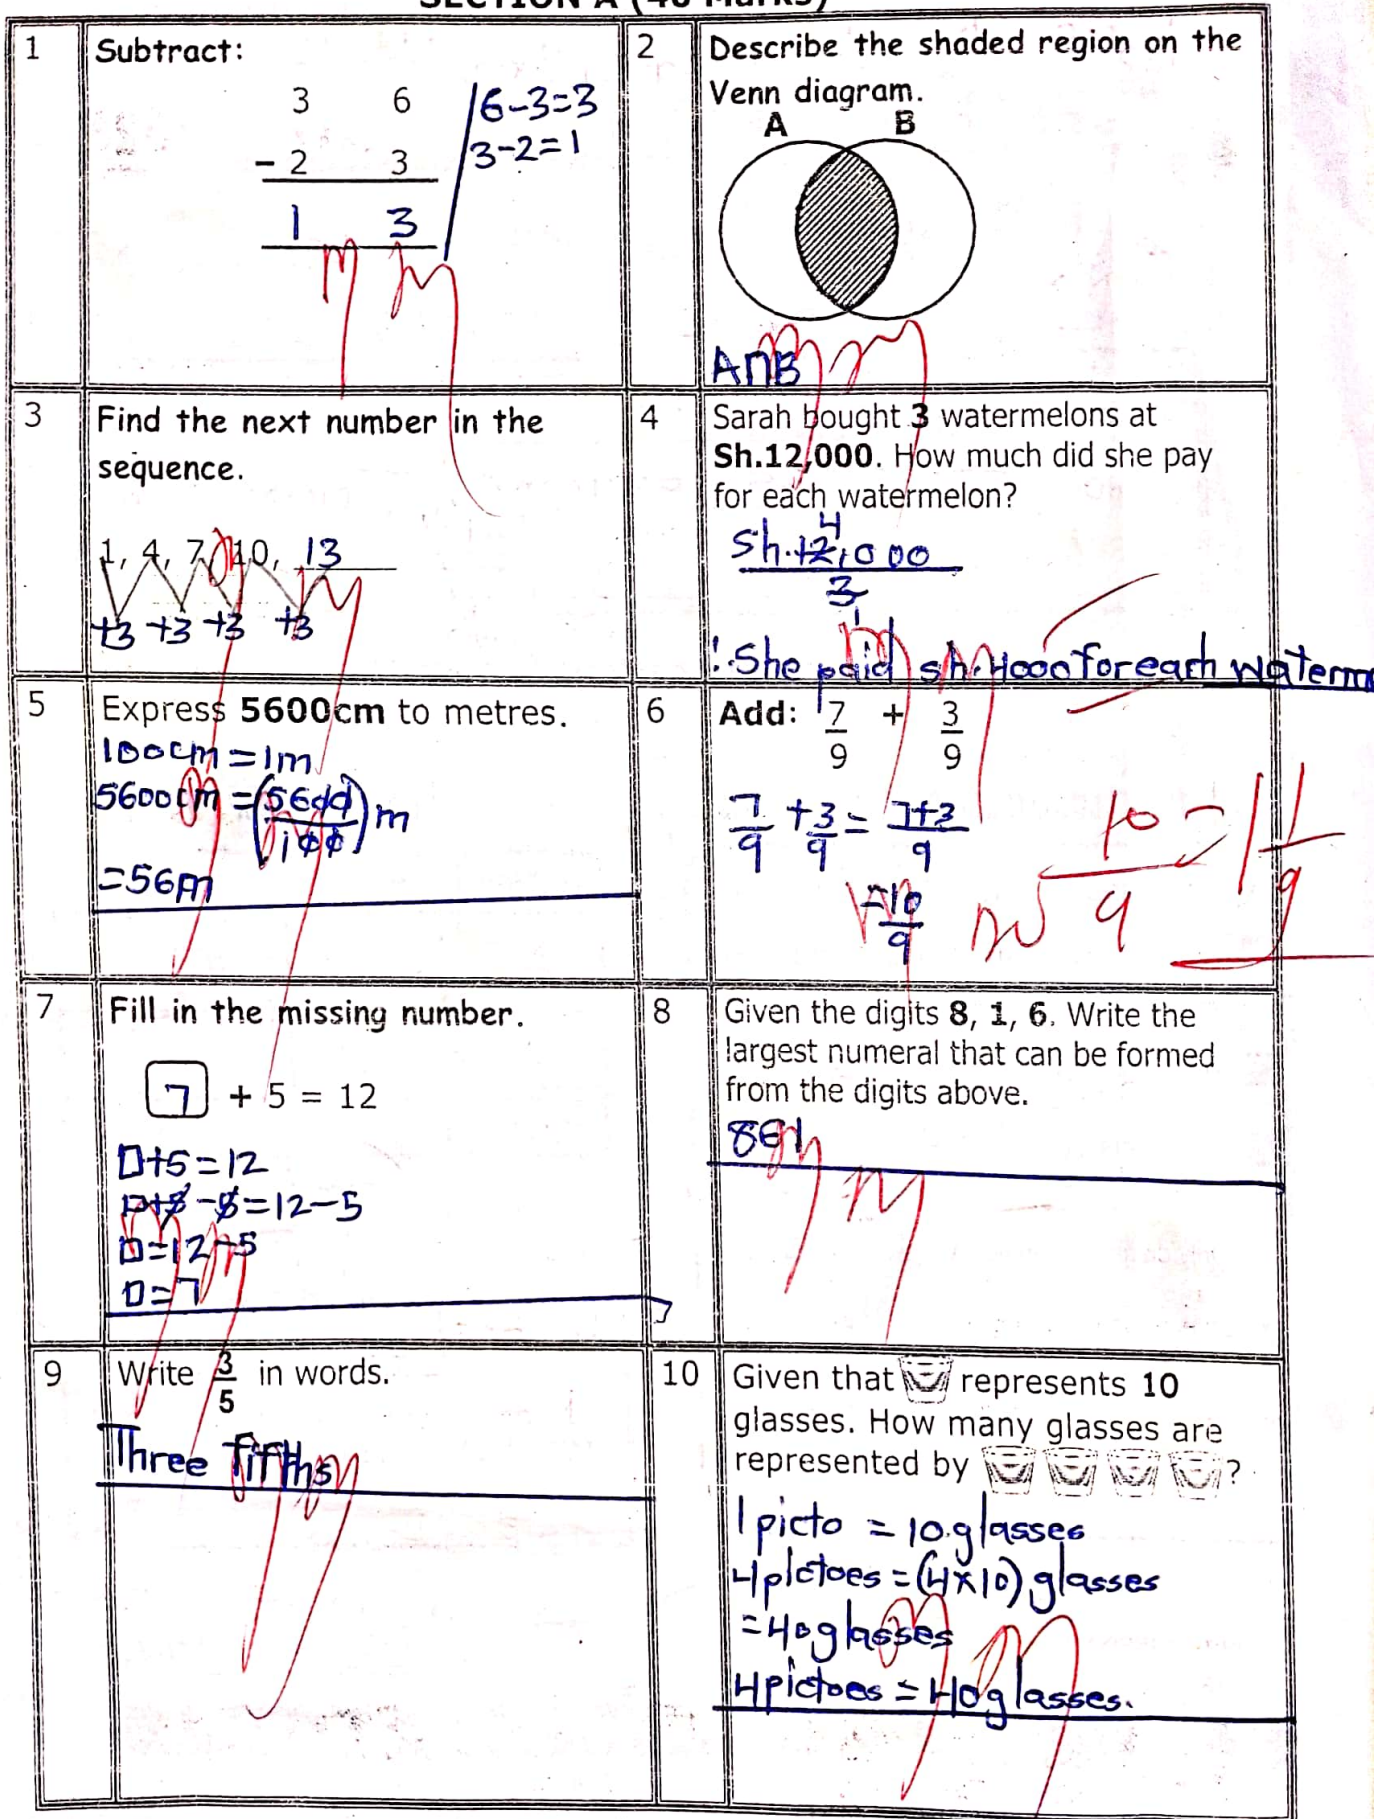 SECTION A (40 Marks)
1
Subtract:
3 6
- 2 3
1 3
6-3=3
3-2=1
2
Describe the shaded region on the
Venn diagram.
A B
A∩B
3
Find the next number in the
sequence.
1, 4, 7, 10, 13
+3 +3 +3 +3
4
Sarah bought 3 watermelons at
Sh.12,000. How much did she pay
for each watermelon?
4
Sh.12,000
3
1
∴She paid sh.4000 for each waterm
5
Express 5600cm to metres.
100cm = 1m
5600cm = (5600/100)m
=56m
6
Add: 7/9 + 3/9
7/9 + 3/9 = 7+3/9
=10/9
10/9 = 1 1/9
7
Fill in the missing number.
7 + 5 = 12
□+5=12
□+5-5=12-5
□=12-5
□=7
8
Given the digits 8, 1, 6. Write the
largest numeral that can be formed
from the digits above.
861
9
Write 3/5 in words.
Three fifths
10
Given that represents 10
glasses. How many glasses are
represented by ?
1 picto = 10 glasses
4 pictoes = (4×10) glasses
=40 glasses
4 pictoes = 40 glasses.